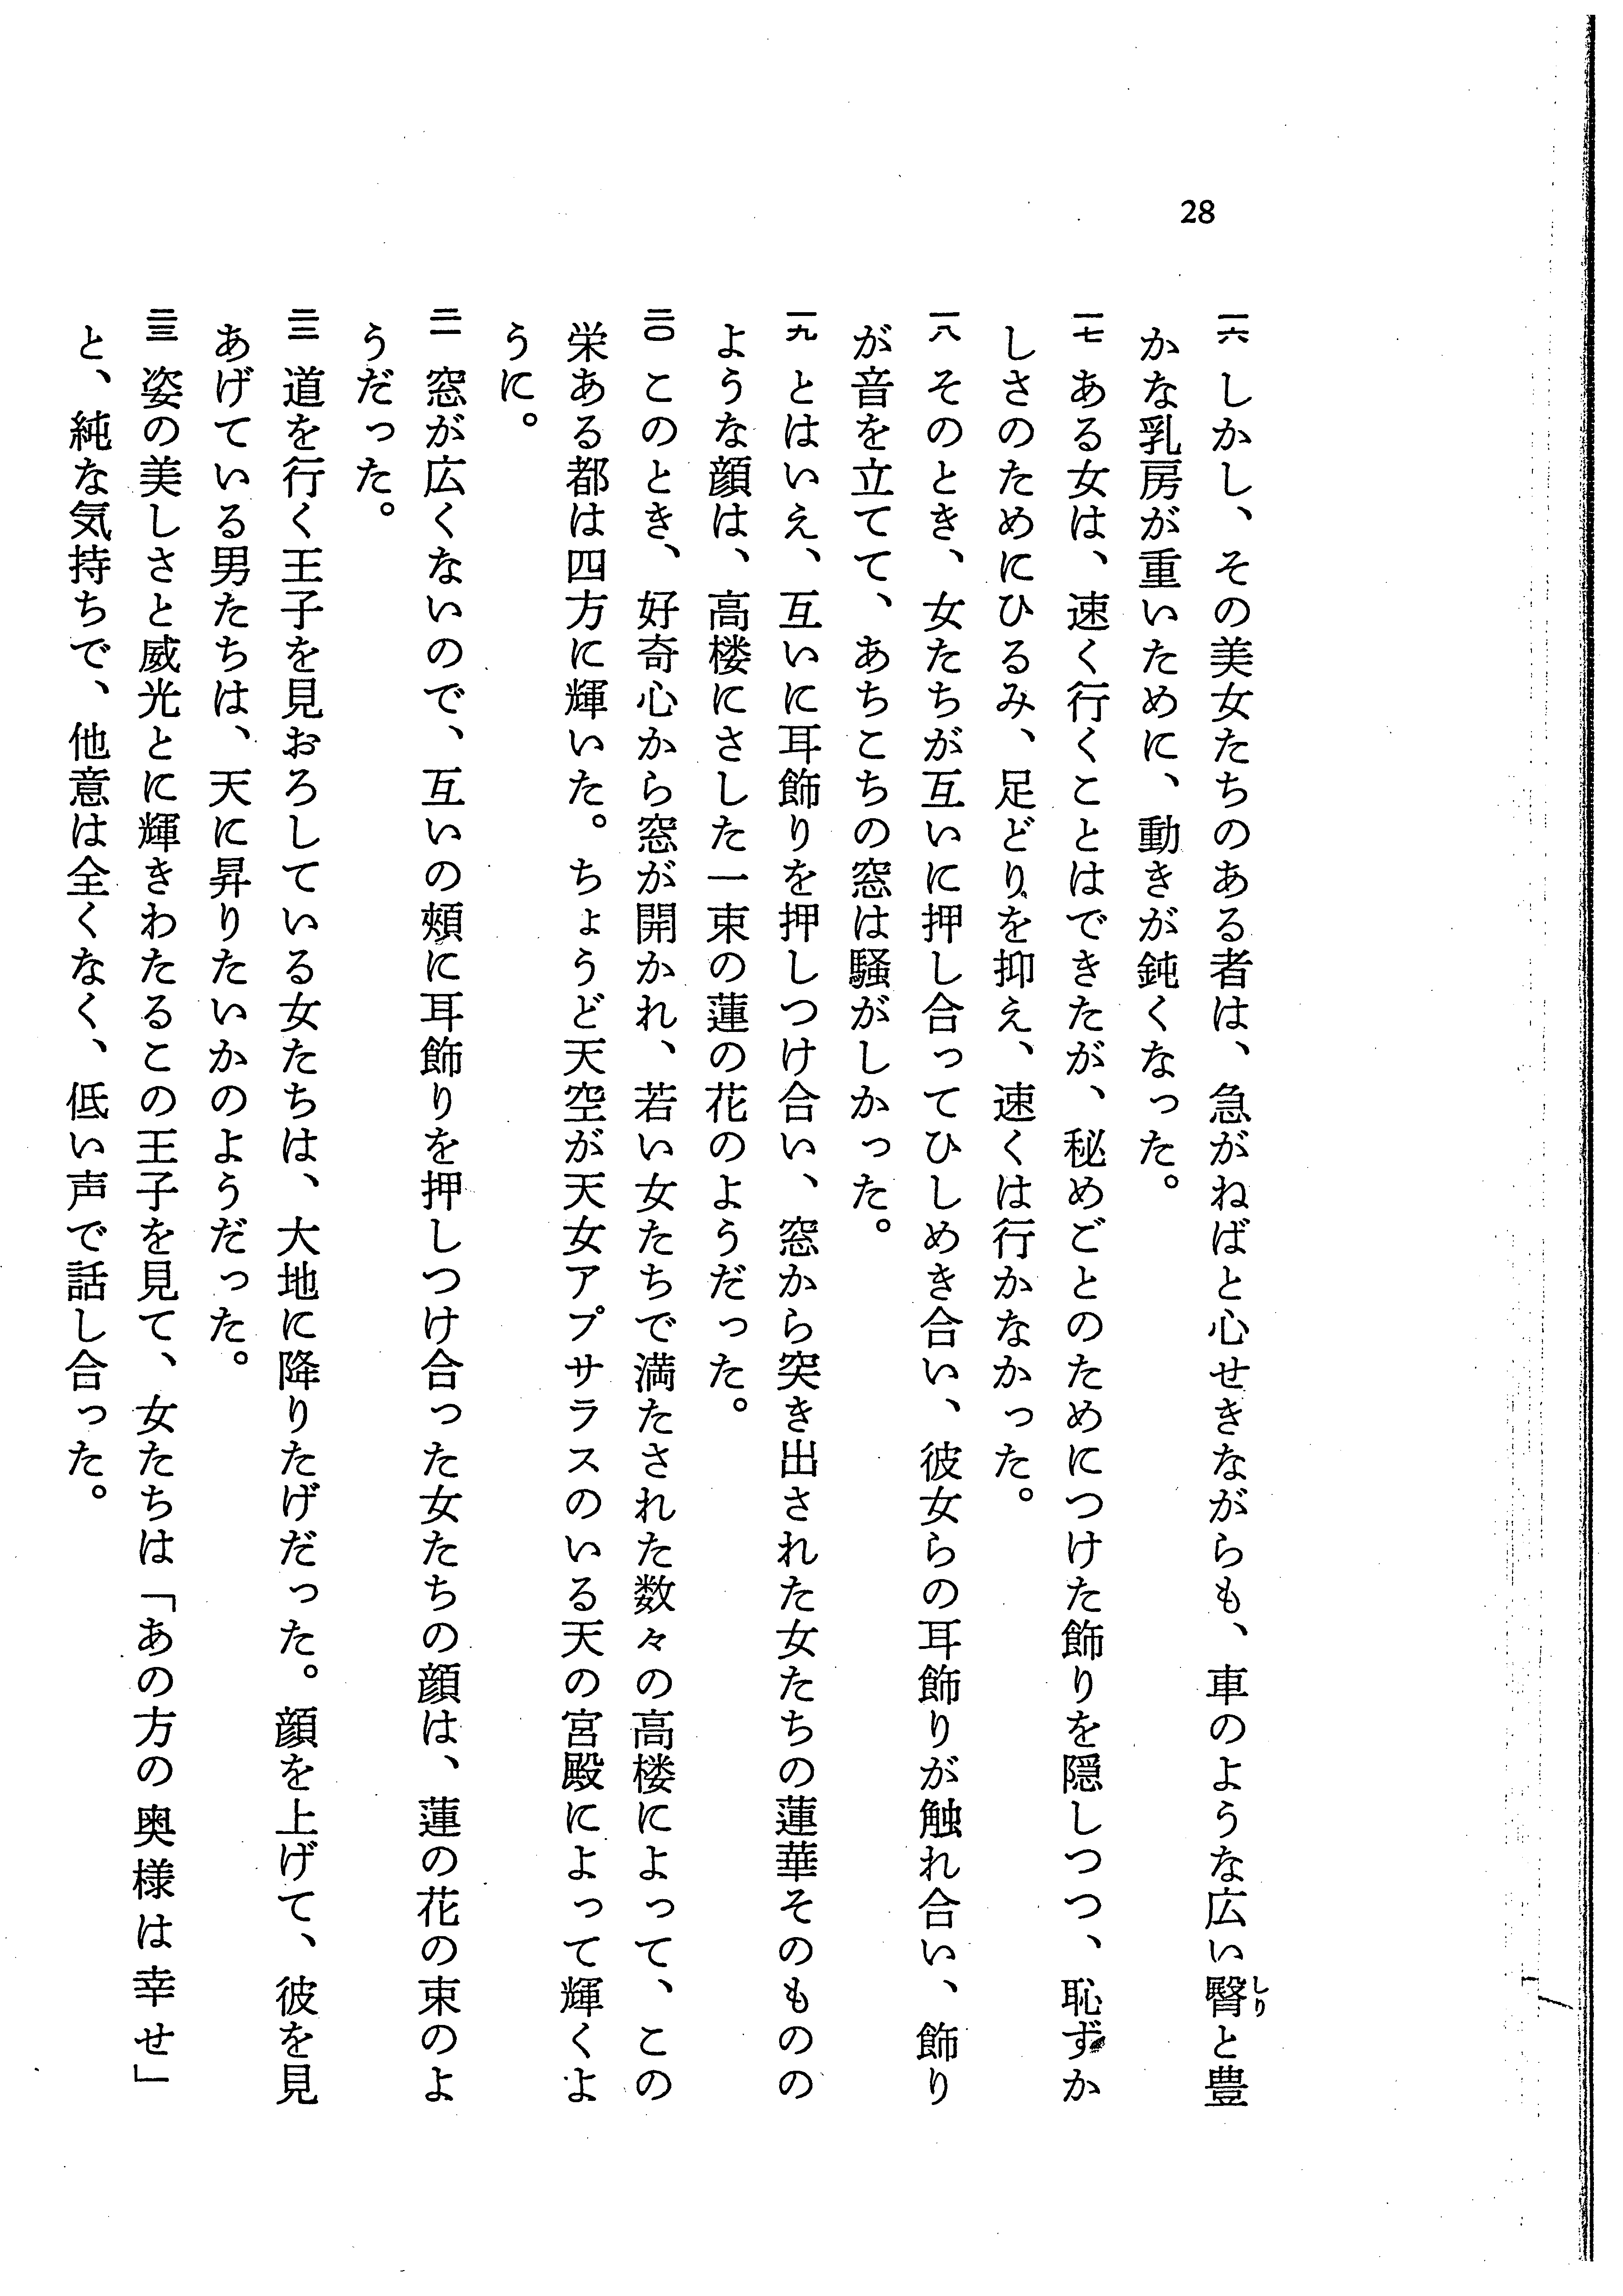 28
一六 しかし、その美女たちのある者は、急がねばと心せきながらも、車のような広い臀と豊
しり
かな乳房が重いために、動きが鈍くなった。
一七 ある女は、速く行くことはできたが、秘めごとのためにつけた飾りを隠しつつ、恥ずか
しさのためにひるみ、足どりを抑え、速くは行かなかった。
一八 そのとき、女たちが互いに押し合ってひしめき合い、彼女らの耳飾りが触れ合い、飾り
が音を立てて、あちこちの窓は騒がしかった。
一九 とはいえ、互いに耳飾りを押しつけ合い、窓から突き出された女たちの蓮華そのものの
ような顔は、高楼にさした一束の蓮の花のようだった。
二〇 このとき、好奇心から窓が開かれ、若い女たちで満たされた数々の高楼によって、この
栄ある都は四方に輝いた。ちょうど天空が天女アプサラスのいる天の宮殿によって輝くよ
うに。
二一 窓が広くないので、互いの頰に耳飾りを押しつけ合った女たちの顔は、蓮の花の束のよ
うだった。
二二 道を行く王子を見おろしている女たちは、大地に降りたげだった。顔を上げて、彼を見
あげている男たちは、天に昇りたいかのようだった。
二三 姿の美しさと威光とに輝きわたるこの王子を見て、女たちは「あの方の奥様は幸せ」
と、純な気持ちで、他意は全くなく、低い声で話し合った。